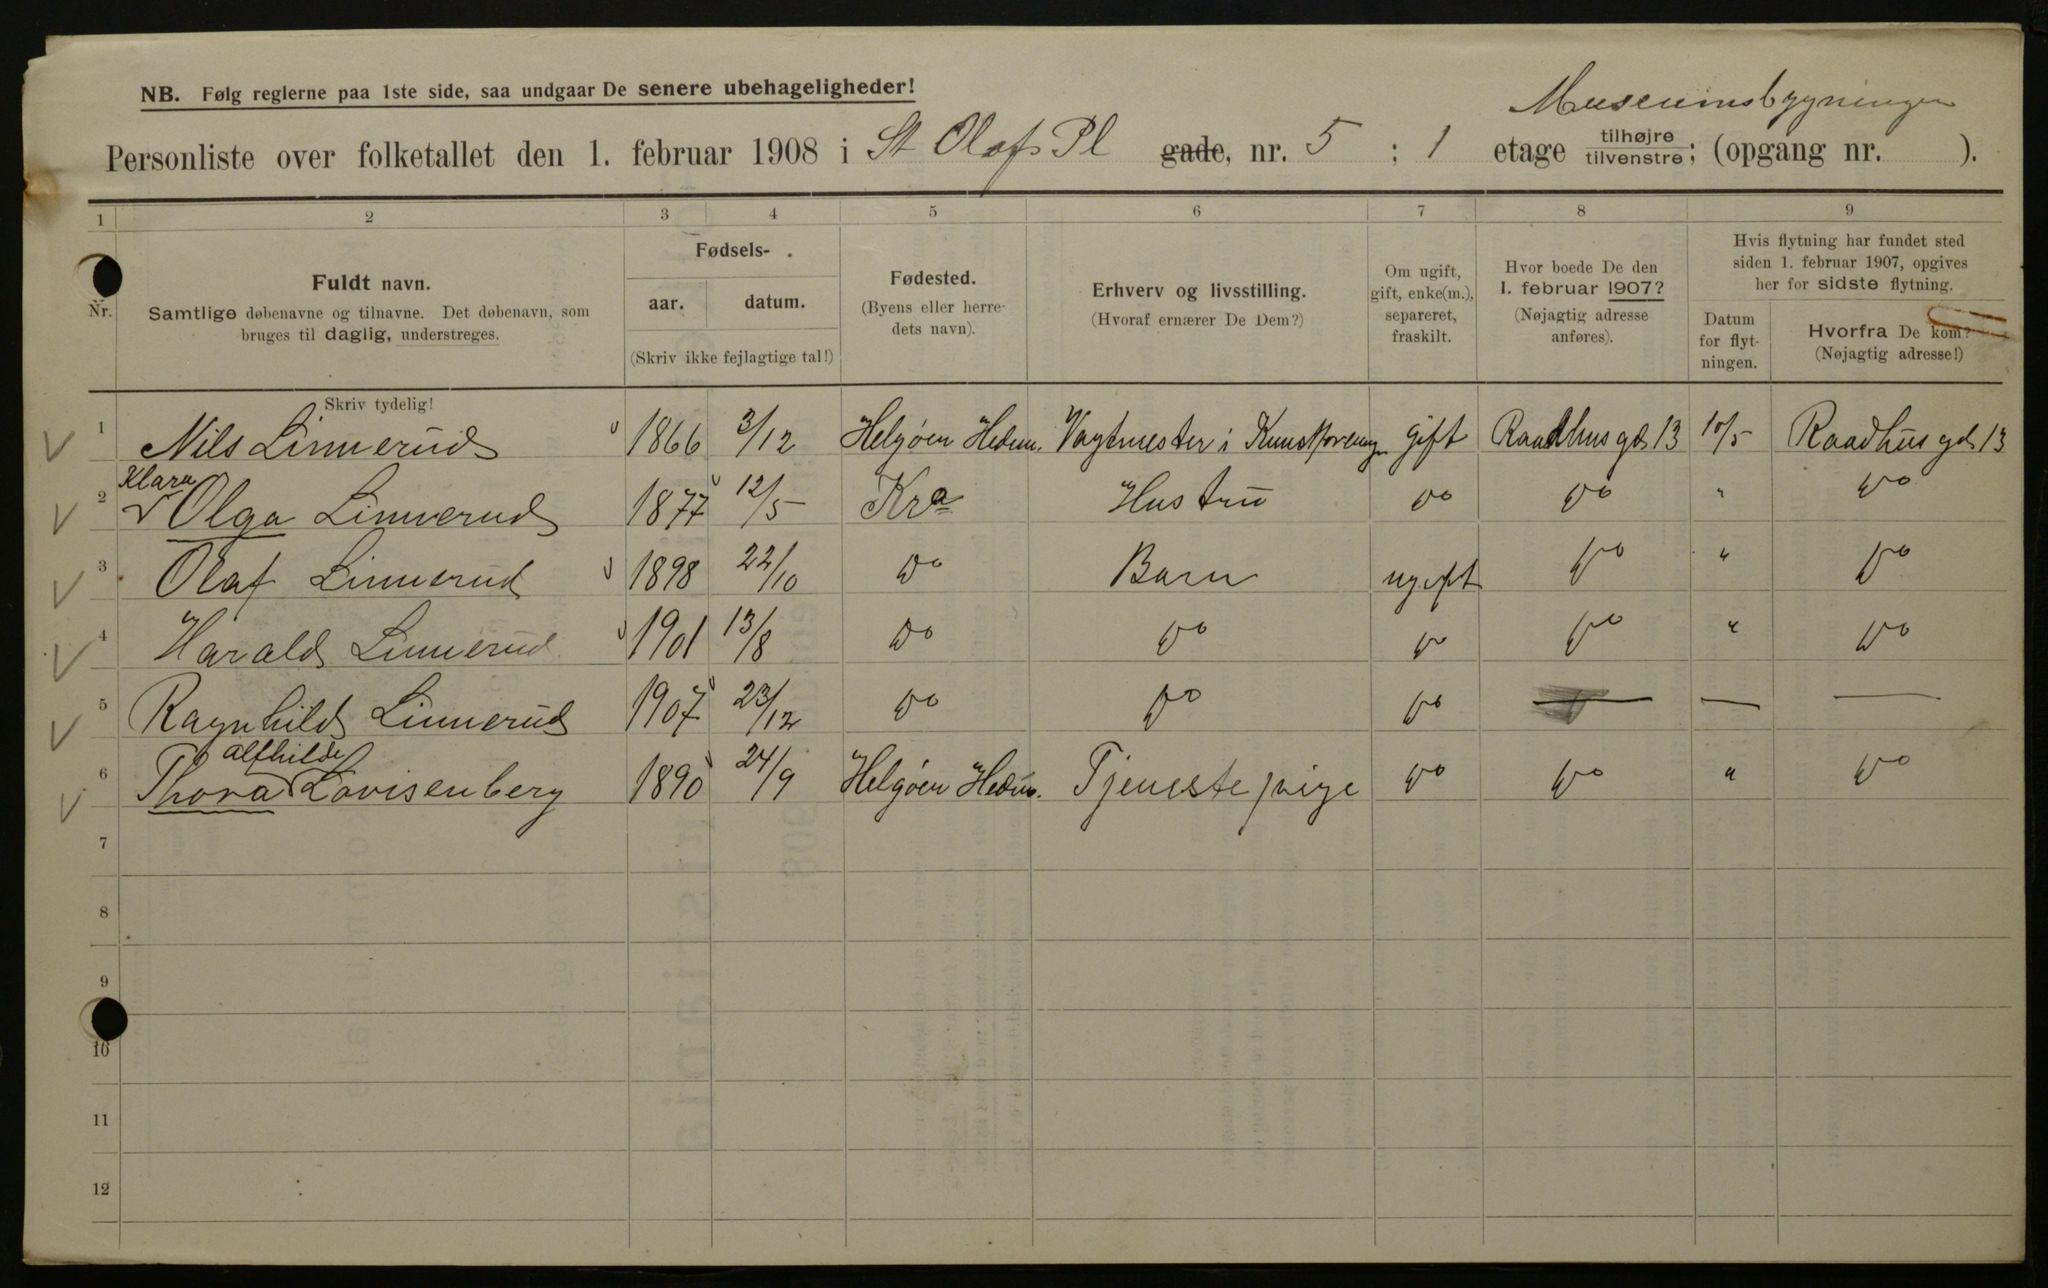 NB. Følg reglerne paa 1ste side, saa undgaar De senere ubehageligheder!
Museumsbygningen
Personliste over folketallet den 1. februar 1908 i St Olafs Pl gade, nr. 5 ; 1 etage tilhøjre tilvenstre; (opgang nr. ).
1 2 3 4 5 6 7 8 9
Nr.
Fuldt navn.
Samtlige døbenavne og tilnavne. Det døbenavn, som
bruges til daglig, understreges.
Skriv tydelig!
Fødsels-
aar. datum.
(Skriv ikke fejlagtige tal!)
Fødested.
(Byens eller herre-
dets navn).
Erhverv og livsstilling.
(Hvoraf ernærer De Dem?)
Om ugift,
gift, enke(m.),
separeret,
fraskilt.
Hvor boede De den
1. februar 1907?
(Nøjagtig adresse
anføres).
Hvis flytning har fundet sted
siden 1. februar 1907, opgives
her for sidste flytning.
Datum
for flyt-
ningen.
Hvorfra De kom?
(Nøjagtig adresse!)
1 Nils Linnerud 1866 3/12 Helgøen Hedm. Vagtmester i Kunstforening gift Raadhusgd 13 10/5 Raadhusgd 13
Klara
2 Olga Linnerud 1877 12/5 Kra Hustru Do Do " Do
3 Olaf Linnerud 1898 22/10 Do Barn ugift Do " Do
4 Harald Linnerud 1901 13/8 Do Do Do Do " Do
5 Ragnhild Linnerud 1907 23/12 Do Do Do — — —
Alfhilde
6 Thora Lovisenberg 1890 24/9 Helgøen Hedm. Tjenestepige Do Do " Do
7
8
9
10
11
12